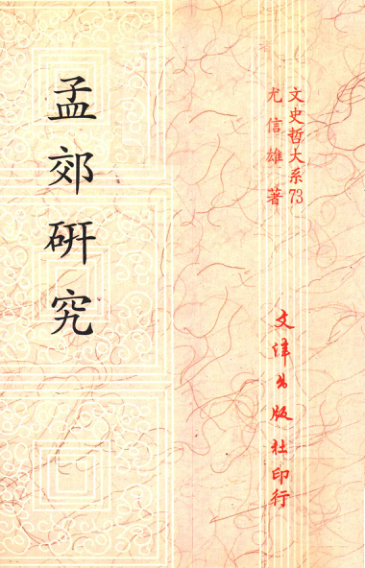 文史哲大系73
尤信雄 著
孟郊研究
文津出版社印行